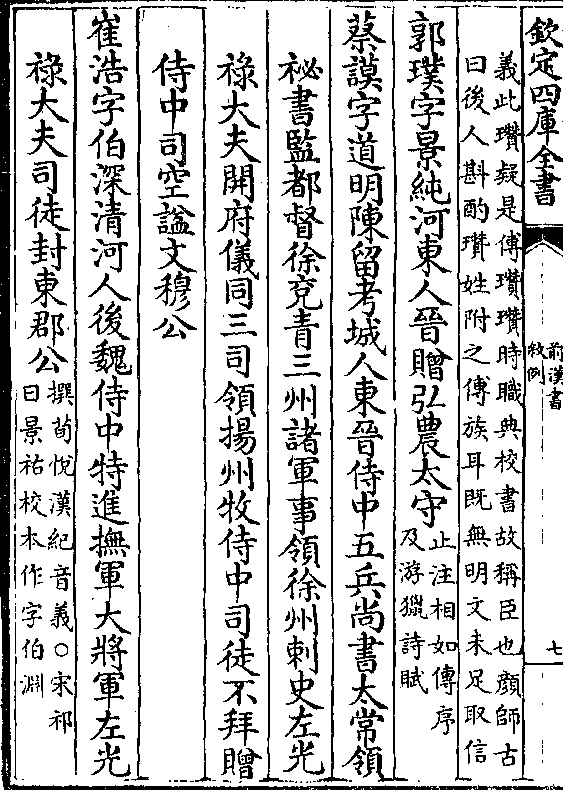 欽定四庫全書
前漢書
敘例
七
義此瓚疑是傅瓚瓚時職典校書故稱臣也顔師古
曰後人斟酌瓚姓附之傅族耳既無明文未足取信
郭璞字景純河東人晉贈弘農太守止注相如傳序
及游獵詩賦
蔡謨字道明陳留考城人東晉侍中五兵尚書太常領
祕書監都督徐兗青三州諸軍事領徐州刺史左光
祿大夫開府儀同三司領揚州牧侍中司徒不拜贈
侍中司空謚文穆公
崔浩字伯深清河人後魏侍中特進撫軍大將軍左光
祿大夫司徒封東郡公撰荀悅漢紀音義○宋祁
曰景祐校本作字伯淵